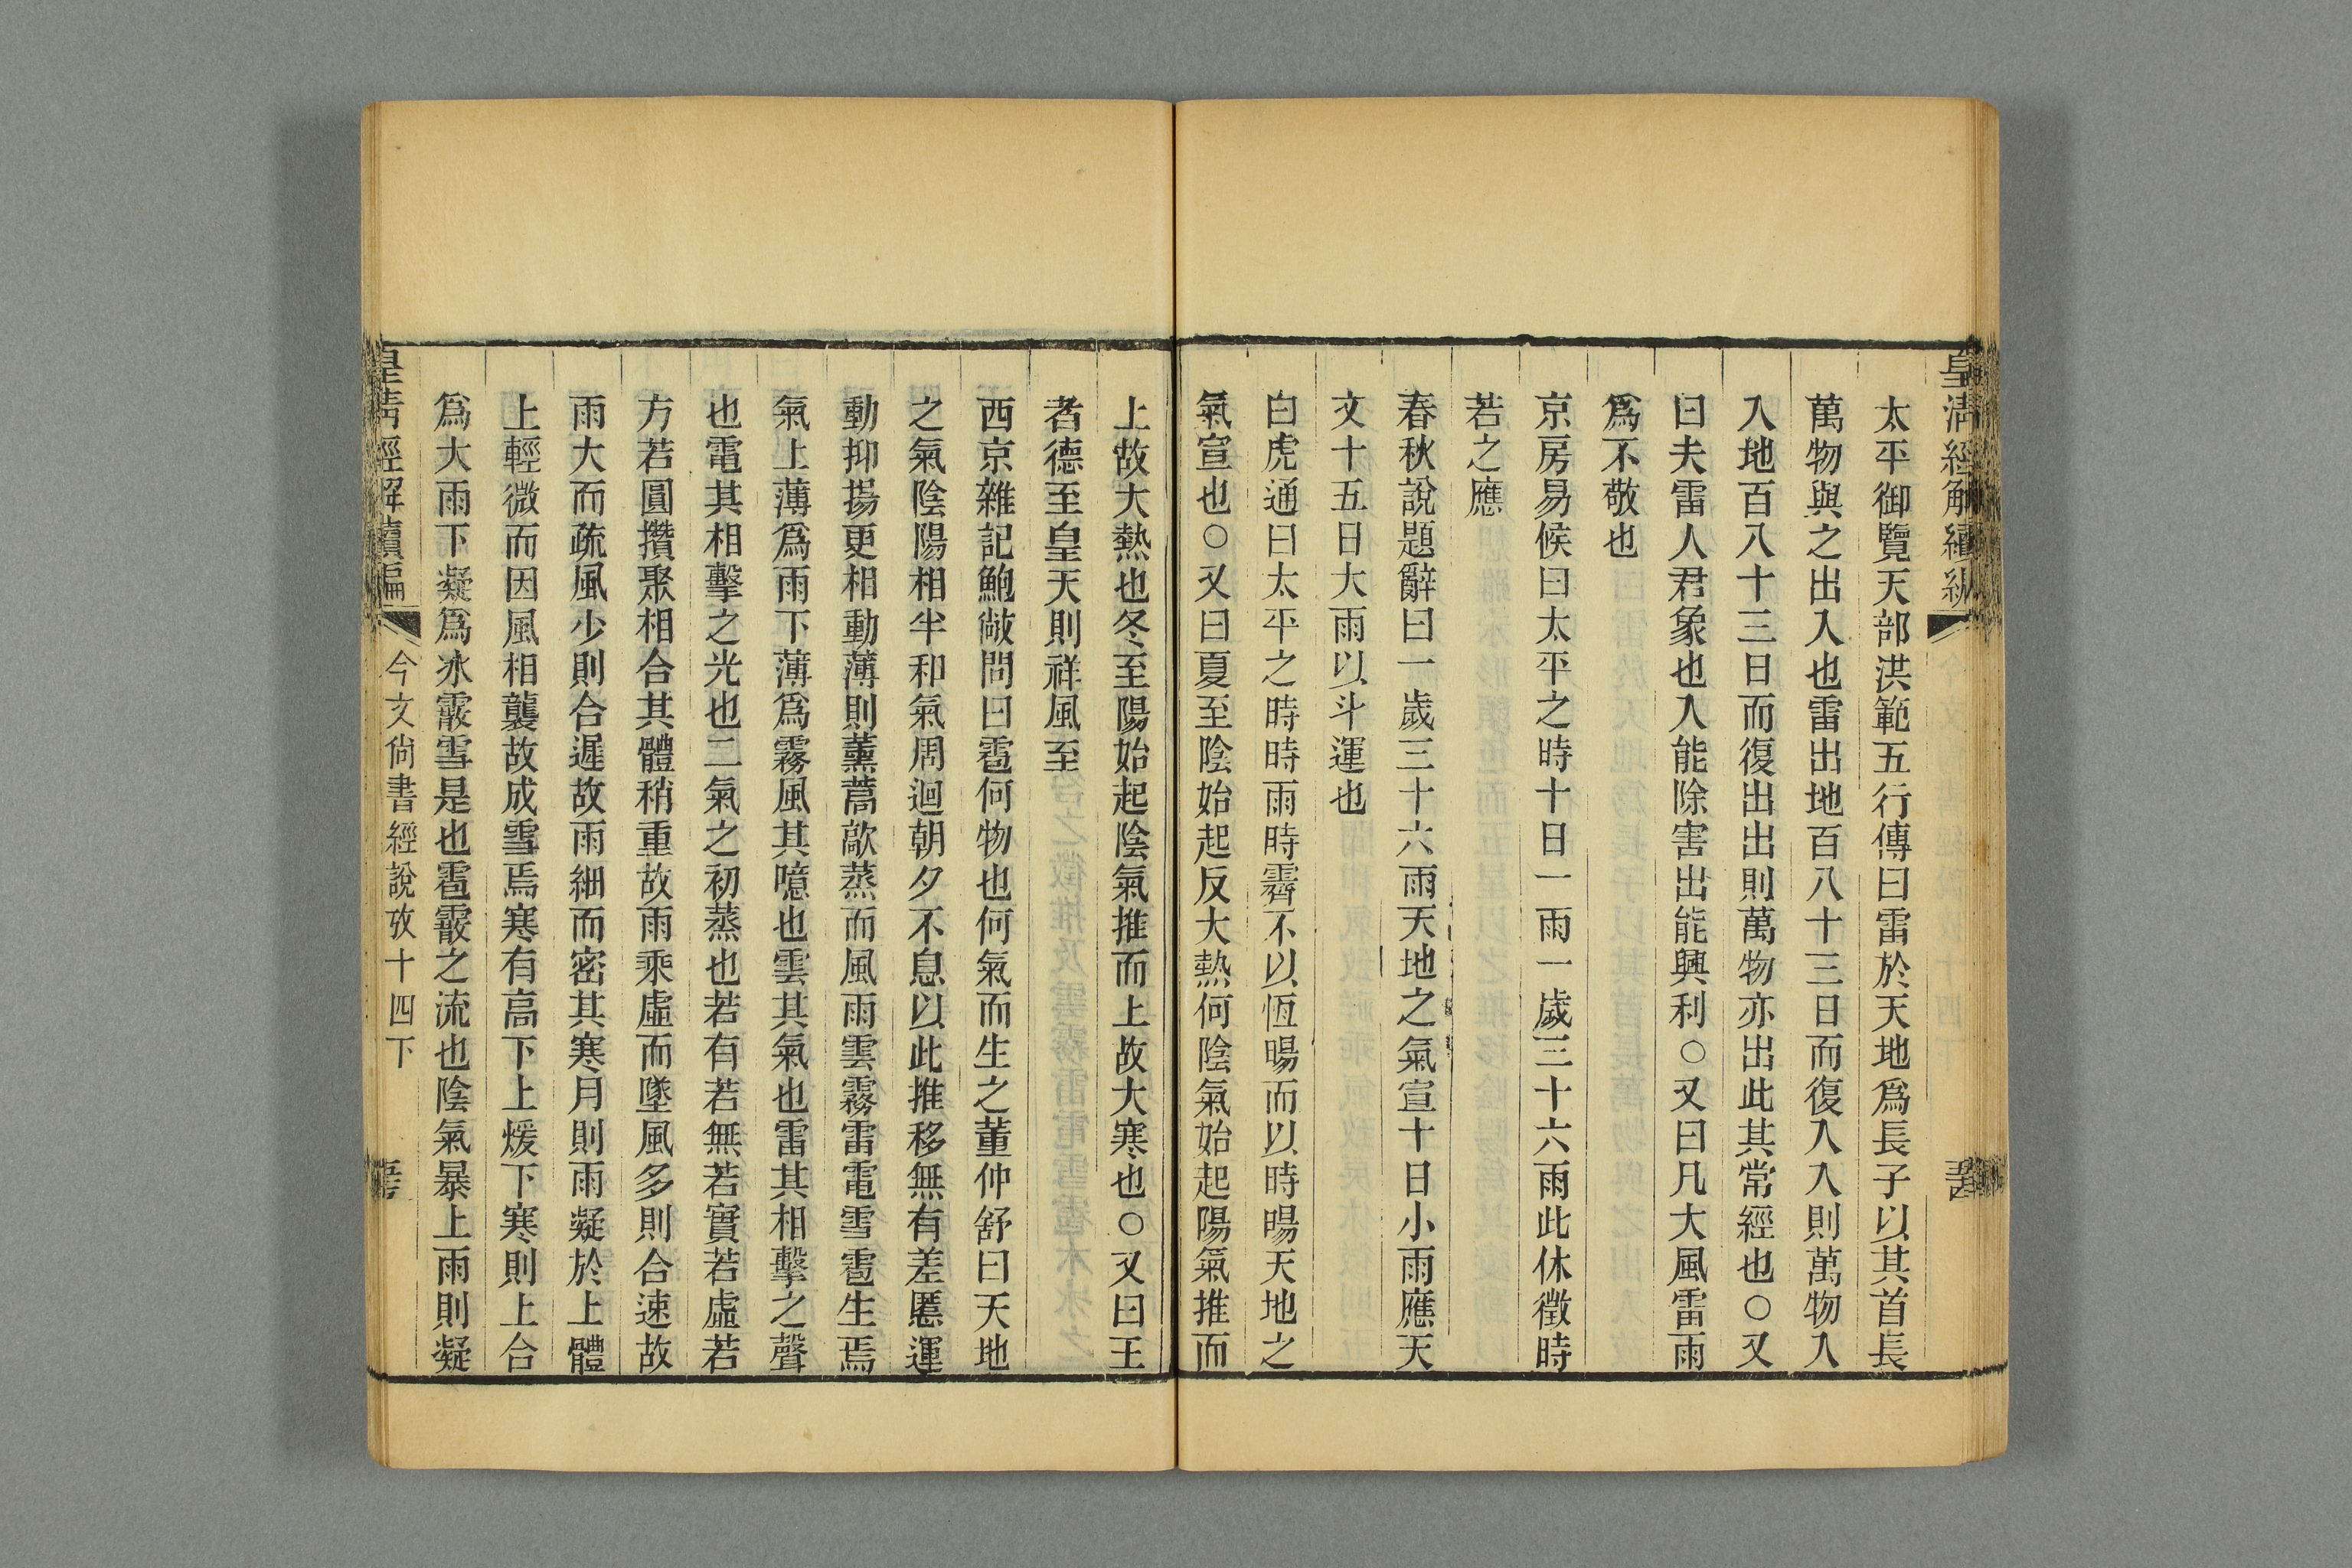 皇清經解續編
太平御覽天部洪範五行傳曰雷於天地爲長子以其首長
萬物與之出入也雷出地百八十三日而復入入則萬物入
入地百八十三日而復出出則萬物亦出此其常經也○又
曰夫雷人君象也入能除害出能興利○又曰凡大風雷雨
爲不敬也
京房易候曰太平之時十日一雨一歲三十六雨此休徵時
若之應
春秋說題辭曰一歲三十六雨天地之氣宣十日小雨應天
文十五日大雨以斗運也
白虎通曰太平之時時雨時霽不以恆暘而以時暘天地之
氣宣也○又曰夏至陰始起反大熱何陰氣始起陽氣推而
上故大熱也冬至陽始起陰氣推而上故大寒也○又曰王
者德至皇天則祥風至
西京雜記鮑敞問曰雹何物也何氣而生之董仲舒曰天地
之氣陰陽相半和氣周迴朝夕不息以此推移無有差慝運
動抑揚更相動薄則薰蒿歊蒸而風雨雲霧雷電雪雹生焉
氣上薄爲雨下薄爲霧風其噫也雲其氣也雷其相擊之聲
也電其相擊之光也二氣之初蒸也若有若無若實若虛若
方若圓攢聚相合其體稍重故雨乘虛而墜風多則合速故
雨大而疏風少則合遲故雨細而密其寒月則雨凝於上體
上輕微而因風相襲故成雪焉寒有高下上煖下寒則上合
爲大雨下凝爲冰霰雪是也雹霰之流也陰氣暴上雨則凝
皇清經解續編
今文尚書經說攷十四下